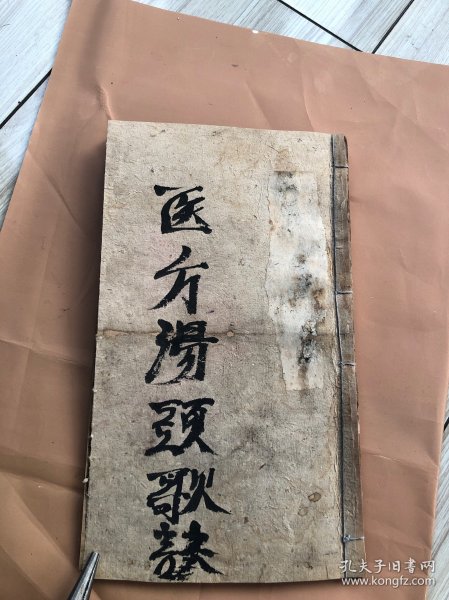 医方湯頭歌訣
孔夫子旧书网
www.kongfz.com